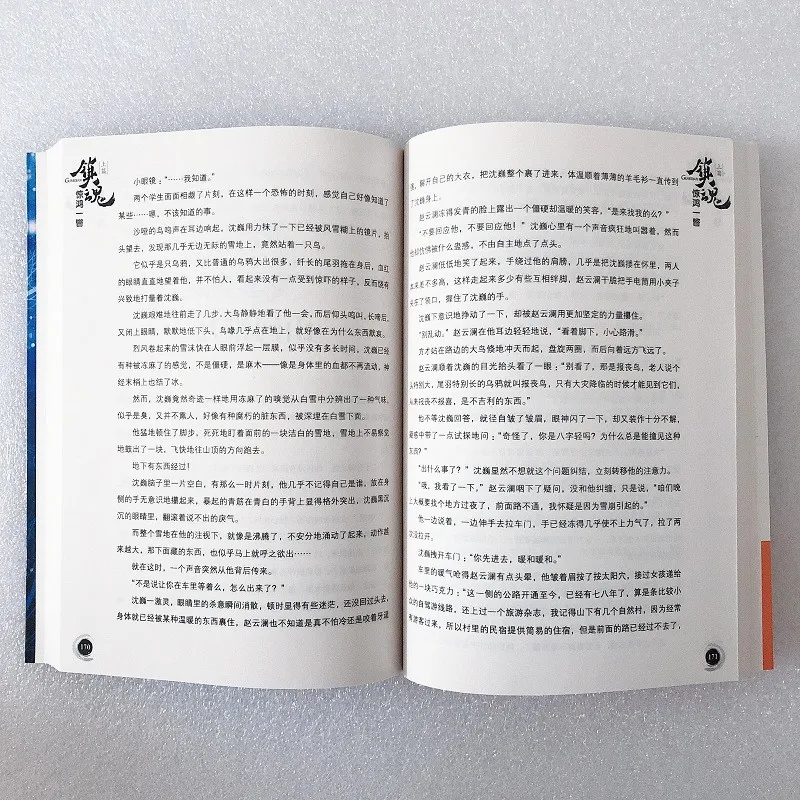 镇魂
GUARDIAN
上篇
惊鸿一瞥
小眼镜：“……我知道。”
两个学生面面相觑了片刻，在这样一个恐怖的时刻，感觉自己好像知道了
某些……嗯，不该知道的事。
沙哑的鸟鸣声在耳边响起，沈巍用力抹了一下已经被风雪糊上的镜片，抬
头望去，发现那几乎无边无际的雪地上，竟然站着一只鸟。
它似乎是只乌鸦，又比普通的乌鸦大出很多，纤长的尾羽拖在身后，血红
的眼睛直直地望着他，并不怕人，看起来没有一点受到惊吓的样子，反而饶有
兴致地打量着沈巍。
沈巍艰难地往前走了几步，大鸟静静地看了他一会，而后仰头鸣叫，长啼后，
又闭上眼睛，默默地低下头，鸟喙几乎点在地上，就好像在为什么东西默哀。
烈风卷起来的雪沫快在人眼前浮起一层膜，似乎没有多长时间，沈巍已经
有种被冻麻了的感觉，不是僵硬，是麻木——像是身体里的血都不再流动，神
经末梢上也结了冰。
然而，沈巍竟然奇迹一样地用冻麻了的嗅觉从白雪中分辨出了一种气味，
似乎是臭，又并不熏人，好像有种腐朽的脏东西，被深埋在白雪下面。
他猛地顿住了脚步，死死地盯着面前的一块洁白的雪地，雪地上不易察觉
地鼓出了一块，飞快地往山顶的方向跑去。
地下有东西经过！
沈巍脑子里一片空白，有那么一时片刻，他几乎不记得自己是谁，放在身
侧的手无意识地攥起来，暴起的青筋在青白的手背上显得格外突出，沈巍黑沉
沉的眼睛里，翻滚着说不出的戾气。
而整个雪地在他的注视下，就像是沸腾了，不安分地涌动了起来，动作越
来越大，那下面藏的东西，也似乎马上就呼之欲出……
就在这时，一个声音突然从他背后传来。
“不是说让你在车里等着么，怎么出来了？”
沈巍一激灵，眼睛里的杀意瞬间消散，顿时里得有些迷茫，还没回过头去，
身体就已经被某种温暖的东西裹住，赵云澜也不知道是真不怕冷还是咬着牙逞
170
镇魂
GUARDIAN
上篇
惊鸿一瞥
强，解开自己的大衣，把沈巍整个裹了进来，体温顺着薄薄的羊毛衫一直传到
了沈巍身上。
赵云澜冻得发青的脸上露出一个僵硬却温暖的笑容，“是来找我的么？”
“不要回应他，不要回应他！”沈巍心里有一个声音疯狂地叫嚣着，然而
他却仿佛被什么蛊惑，不由自主地点了点头。
赵云澜低低地笑了起来，手绕过他的肩膀，几乎是把沈巍搂在怀里，两人
本来差不多高，这样走起来多少有些互相绊脚，赵云澜干脆把手电筒用小夹子
夹在了领口，握住了沈巍的手。
沈巍下意识地挣动了一下，却被赵云澜用更加坚定的力量攥住。
“别乱动。”赵云澜在他耳边轻轻地说，“看着脚下，小心路滑。”
方才站在路边的大鸟倏地冲天而起，盘旋两圈，而后向着远方飞远了。
赵云澜顺着沈巍的目光抬头看了一眼：“别看了，那是报丧鸟，老人说个
头特别大，尾羽特别长的乌鸦就叫报丧鸟，只有大灾降临的时候才能见到它们，
从来报丧不报喜，是不吉利的东西。”
他不等沈巍回答，就径自皱了皱眉，眼神闪了一下，却又装作十分不解，
疑惑中带了一点试探地问：“奇怪了，你是八字轻吗？为什么总是能撞见这种
东西？”
“出什么事了？”沈巍显然不想就这个问题纠结，立刻转移他的注意力。
“哦，我看了一下，”赵云澜咽下了疑问，没和他纠缠，只是说，“咱们晚
上大概要找个地方过夜了，前面路不通，我怀疑是因为雪崩引起的。”
他一边说着，一边伸手去拉车门，手已经冻得几乎使不上力气了，拉了两
次没拉开。
沈巍拽开车门：“你先进去，暖和暖和。”
车里的暖气呛得赵云澜有点头晕，他皱着眉按了按太阳穴，接过女孩递给
他的一块巧克力：“这一侧的公路开通至今，已经有七八年了，算是条比较小
众的自驾游线路，还上过一个旅游杂志，我记得山下有几个自然村，因为经常
有游客过来，所以村里的民宿提供简易的住宿，但是前面的路已经过不去了，
171